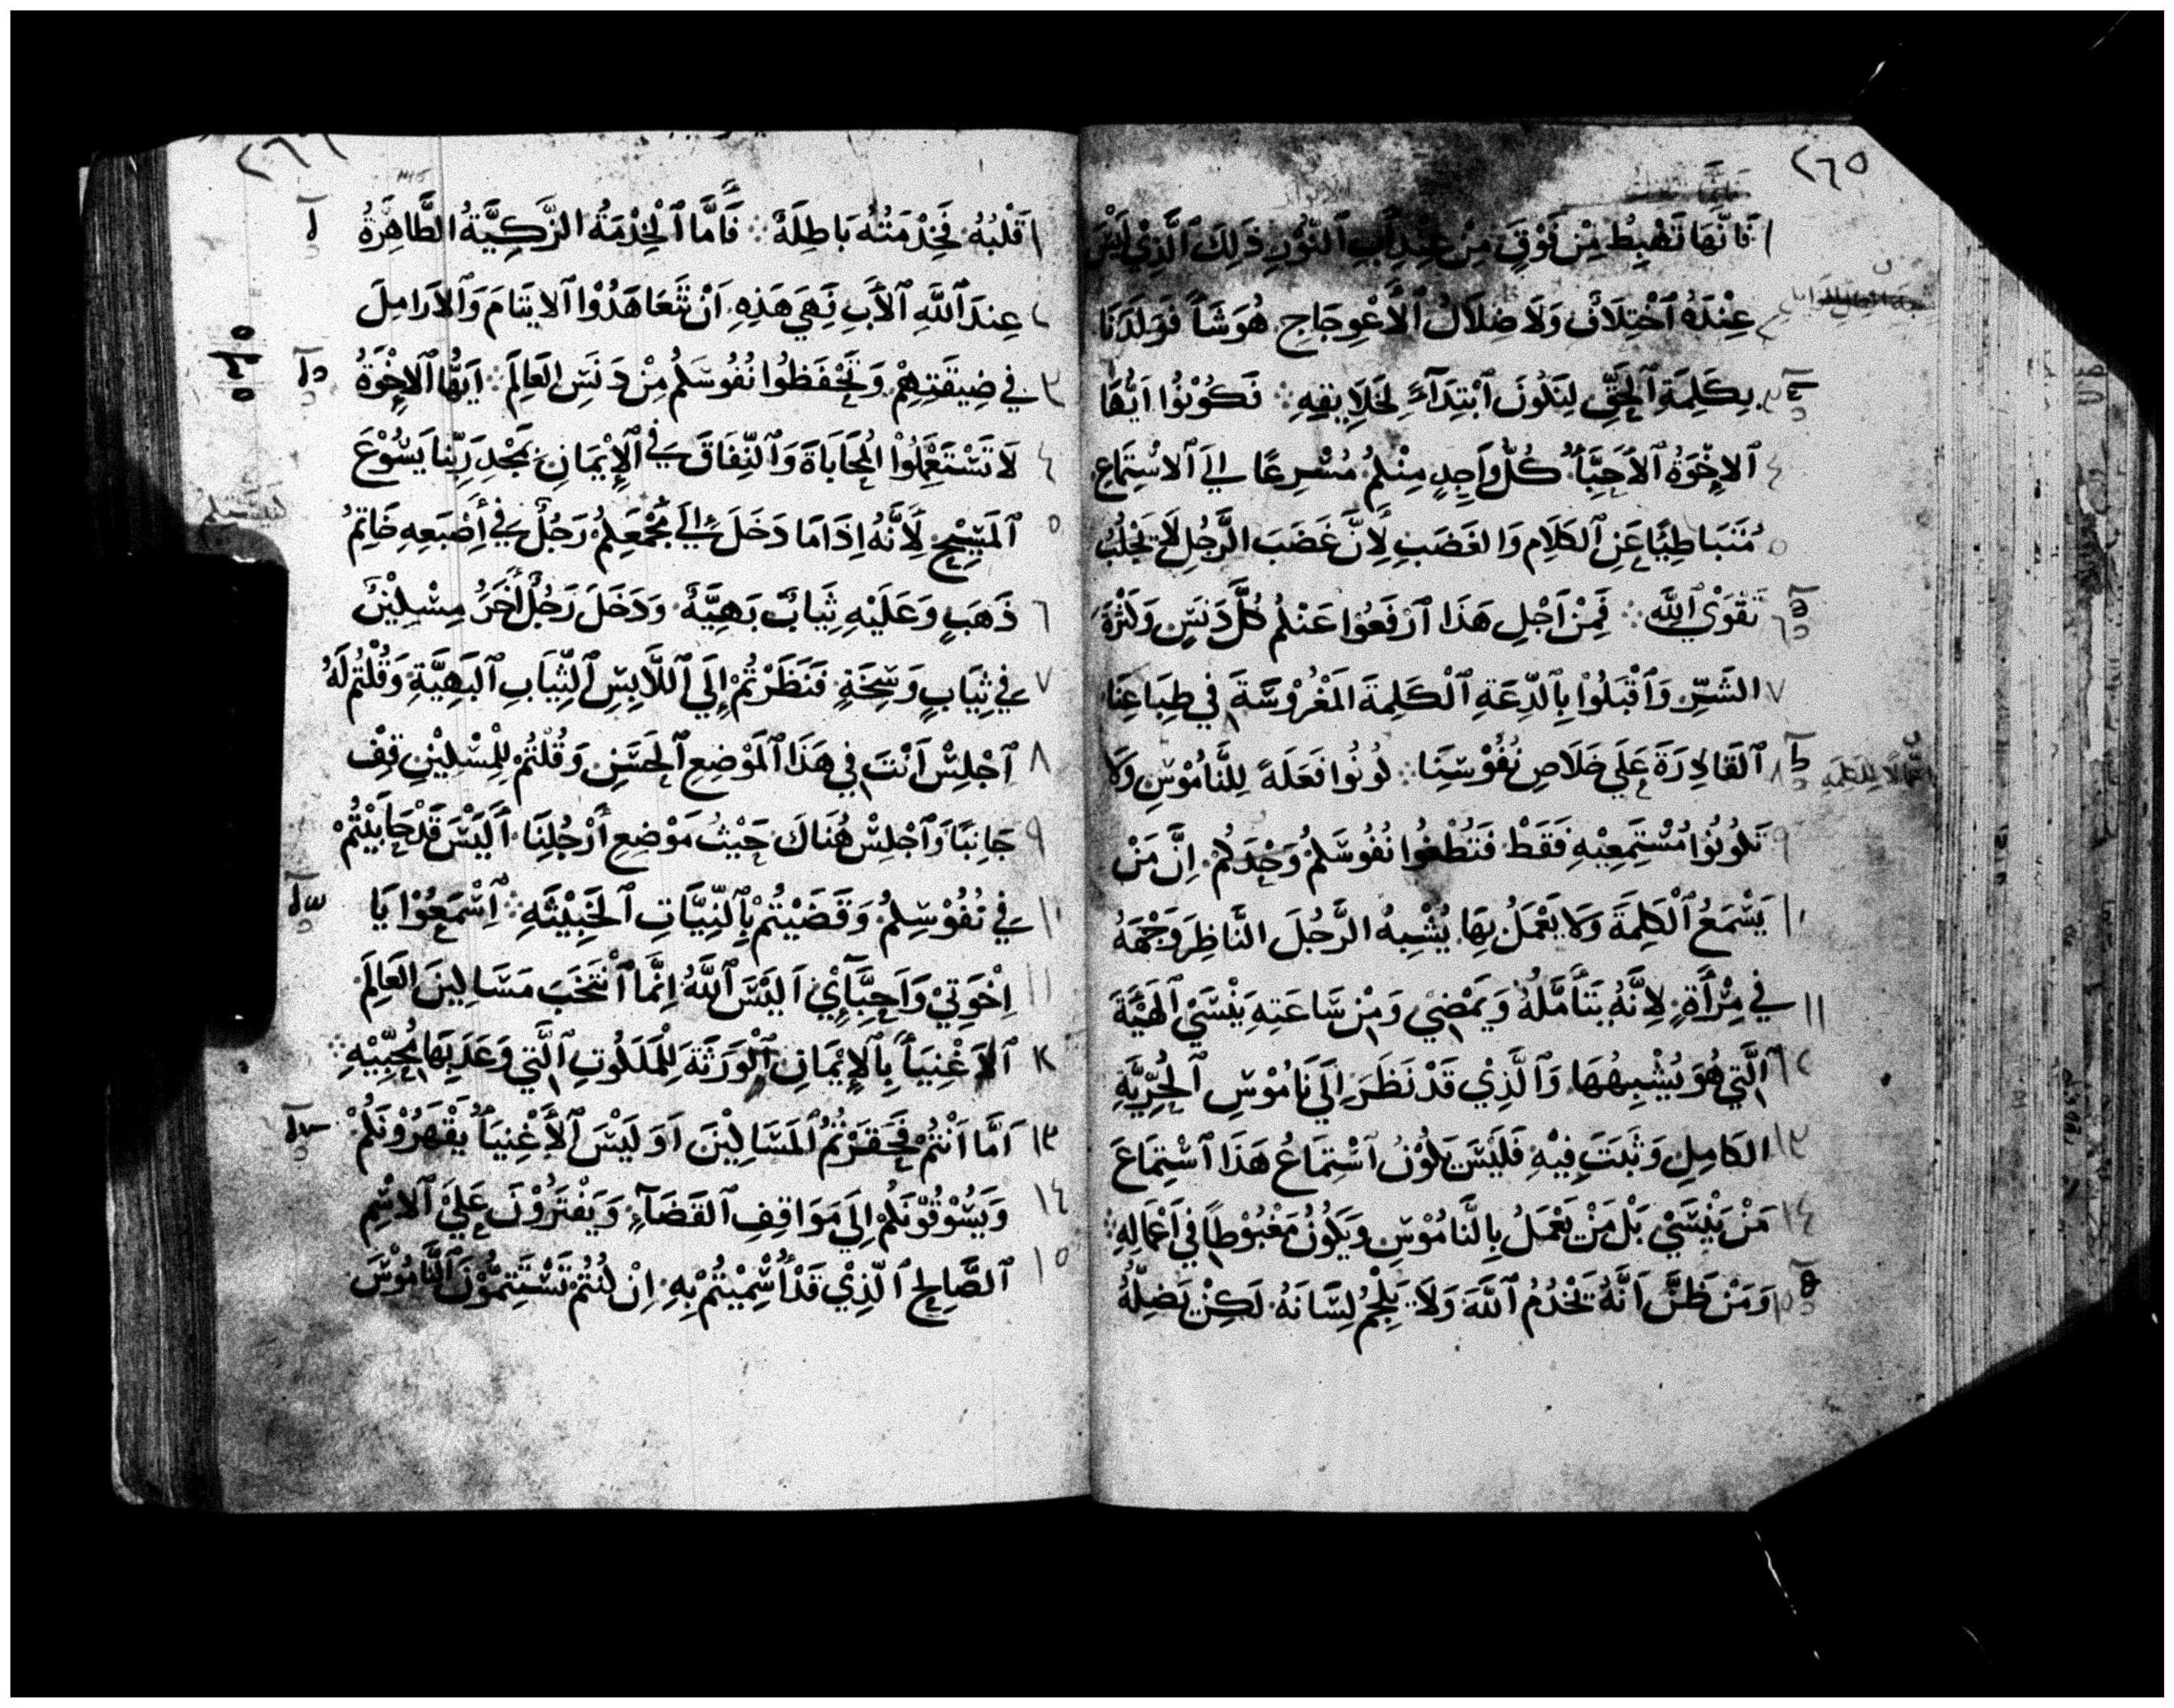 ٢٦٥
١ فَانَّهَا تَهْبِطُ مِنْ فَوْقٍ مِنْ عِنْدِ اَبِ اَلنُّوْرِ ذَلِكَ اَلَّذِيْ لَيْسَ
٢ عِنْدَهُ اَخْتِلَافٌ وَلَا ضِلَالُ اَلْاَعْوِجَاجِ هُوَ شَاَ فَوَلَدَنَا
٣ بِكَلِمَةِ اَلحَقِّ لِنَكُونَ اَبْتِدَآءً لِخَلَايِقِهِ ⁘ فَكُوْنُوُا اَيُّهَا
٤ اَلاِخْوَةُ اَلاَحِبَّاُ كُلُّ وَاحِدٍ مِنْكُمْ مُسْرِعًا اِلَي اَلاسْتِمَاعِ
٥ مُتَبَاطِيًا عَنِ اَلكَلَامِ وَالغَضَبِ لِأَنَّ غَضَبَ الرَّجُلِ لَا يَجْلُبُ
٦ تَقْوَيْ اَللَّه ⁘ فَمِنْ اَجْلِ هَذَا اَرْفَعُوُا عَنْكُمْ كُلَّ دَنَسٍ وَكَثْرَةَ
٧ الشَّرِّ وَاَقْبَلُوْا بِاَلدِّعَةِ اَلْكَلِمَةَ المَغْرُوْسَةَ فِي طِبَاعِنَا
٨ اَلقَادِرَةَ عَلَي خَلَاصِ نُفُوْسِنَا ⁘ كُونُوا فَعَلَةً لِلنَّامُوْسِ وَلَا
٩ تَكُونُوُا مُسْتَمِعِيْهِ فَقَطْ فَتُطْغُوا نُفُوسَكُمْ وَحْدَكُمْ اِنَّ مَنْ
١٠ يَسْمَعُ اَلْكَلِمَةَ وَلَا يَعْمَلُ بِهَا يُشْبِهُ الرَّجُلَ النَّاظِرَ وَجْهَهُ
١١ فِي مِرْأَةٍ لِاَنَّهُ يَتَأَمَّلُهُ وَيَمْضِيْ وَمِنْ سَاعَتِهِ يَنْسَيْ اَلهَيْةَ
١٢ اَلَّتِي هُوَ يُشْبِهُهَا وَاَلَّذِيْ قَدْ نَظَرَ اِلَي نَامُوْسِ اَلْحُرِّيَّةِ
١٣ الكَامِلِ وَثَبَتَ فِيْهِ فَلَيْسَ يَكُوْنُ اَسْتِمَاعُ هَذَا اَسْتِمَاعَ
١٤ مَنْ يَنْسَيْ بَلْ مَنْ يَعْمَلُ بِالنَّامُوْسِ وَيَكُوْنُ مَغْبُوْطًا فِي اَعْمَالِهِ ⁘
١٥ وَمَنْ ظَنَّ اَنَّهُ يَخْدُمُ اَللَّهَ وَلَا يَلْجُمُ لِسَانَهُ لَكِنْ يَضِلُّهُ
٢٦٦
١ قَلْبُهُ فَخِدْمَتُهُ بَاطِلَةٌ ⁘ فَأَمَّا اَلْخِدْمَةُ الزَّكِيَّةُ الطَّاهِرَةُ
٢ عِندَ اَللَّهِ اَلأَبِ فَهِيَ هَذِهِ اَنْ تَتَعَاهَدُوْا اَلايَتَامَ وَاَلاَرَامِلَ
٣ فِي ضِيقَتِهِمْ وَتَحْفَظُوا نُفُوسَكُمْ مِنْ دَنَسِ العَالَمِ ⁘ اَيُّهَا اَلاِخْوَةُ
٤ لَا تَسْتَعْمِلُوْا المُحَابَاةَ وَاَلنِّفَاقَ فِي اَلاِيْمَانِ بِمَجْدِ رَبِّنَا يَسُوْعَ
٥ اَلمَسِيْحِ لِأَنَّهُ اِذَامَا دَخَلَ اِلَي مَجْمَعِكُمْ رَجُلٌ فِي أِصْبَعِهِ خَاتِمُ
٦ ذَهَبٍ وَعَلَيْهِ ثِيَابٌ بَهِيَّةٌ وَدَخَلَ رَجُلٌ أَخَرُ مِسْكِيْنٌ
٧ فِي ثِيَابٍ وَسِخَةٍ فَنَظَرْتُمْ إِلَي اَللَّابِسِ اَلثِّيَابِ اَلبَهِيَّةِ وَقُلْتُمْ لَهُ
٨ اَجْلِسْ اَنْتَ فِي هَذَا اَلمَوْضِعِ اَلحَسَنِ وَقُلْتُمْ لِلْمِسْكِيْنِ قِفْ
٩ جَانِبًا وَاَجْلِسْ هُنَاكَ حَيْثُ مَوْضِعِ أَرْجُلِنَا اَلَيْسَ قَدْ حَابَيْتُمْ
١٠ فِي نُفُوْسِكُمْ وَقَضَيْتُمْ بِاَلنِّيَّاتِ اَلخَبِيْثَةِ ⁘ اَسْمَعُوْا يَا
١١ اِخْوَتِيْ وَاَحِبَّآئِيْ اَلَيْسَ اَللَّهُ اِنَّمَا اَنْتَخَبَ مَسَاكِينَ العَالَمِ
١٢ اَلاَغْنِيَاَ بِاَلاِيْمَانِ اَلْوَرَثَةَ لِلْمَلَكُوتِ اَلَّتِي وَعَدَ بِهَا مُحِبِّيْهِ ⁘
١٣ اَمَّا اَنْتُمْ فَحَقَرْتُمُ المَسَاكِيْنَ اَوَ لَيْسَ اَلأَغْنِيَاُ يَقْهَرُوْنَكُمْ
١٤ وَيَسُوْقُوْنَكُمْ اِلَي مَوَاقِفِ اَلقَضَآءِ وَيَفْتَرُوْنَ عَلَيْ اَلاسْمِ
١٥ اَلصَّالِحِ اَلَّذِيْ قَدْ أُسْمِيْتُمْ بِهِ اِنْ كُنْتُمْ تَسْتَتِمُّوْنَ اَلنَّامُوْسَ